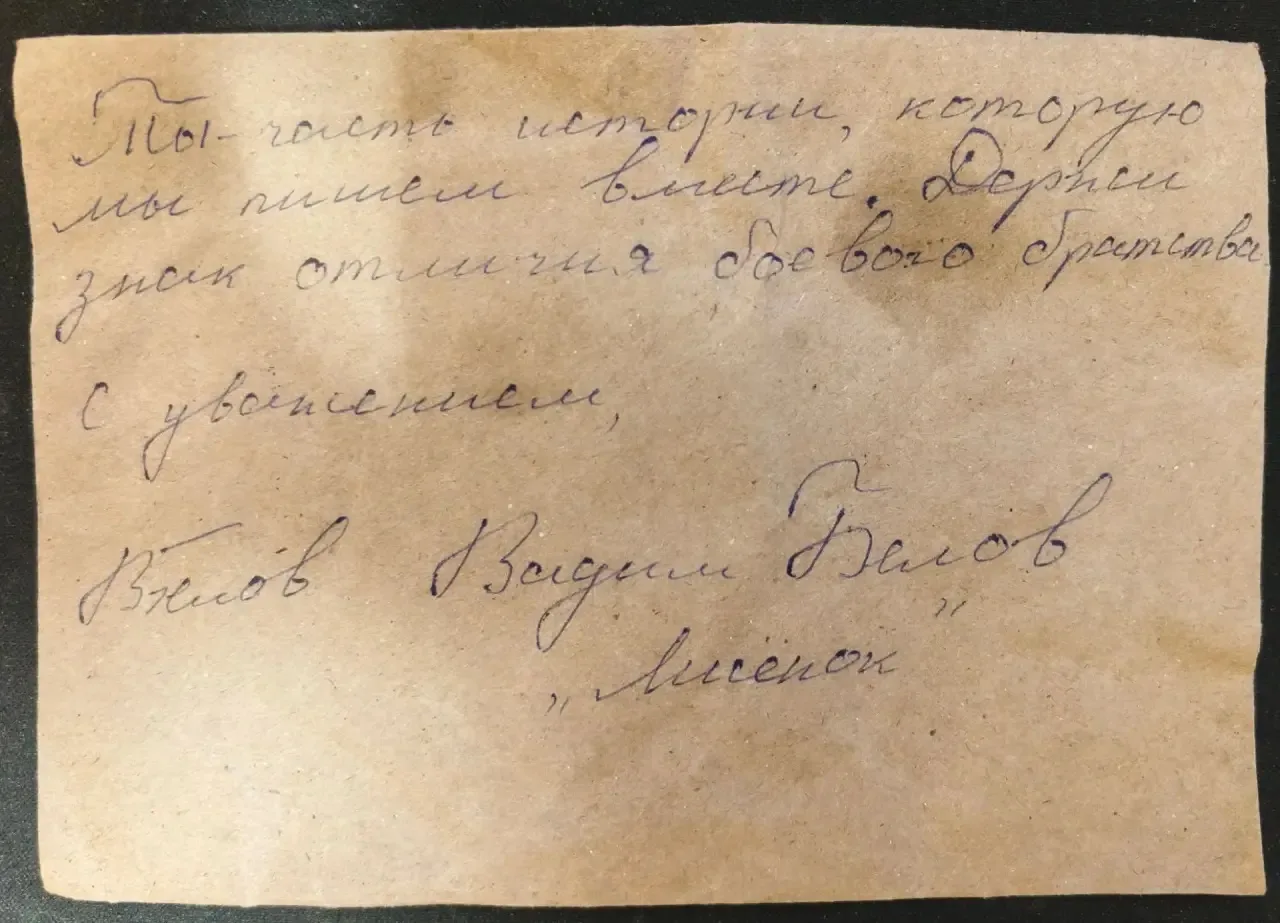 Ты - часть истории, которую
мы пишем вместе. Держи
знак отличия боевого братства
С уважением,
Вадим Белов
„Лисёнок”